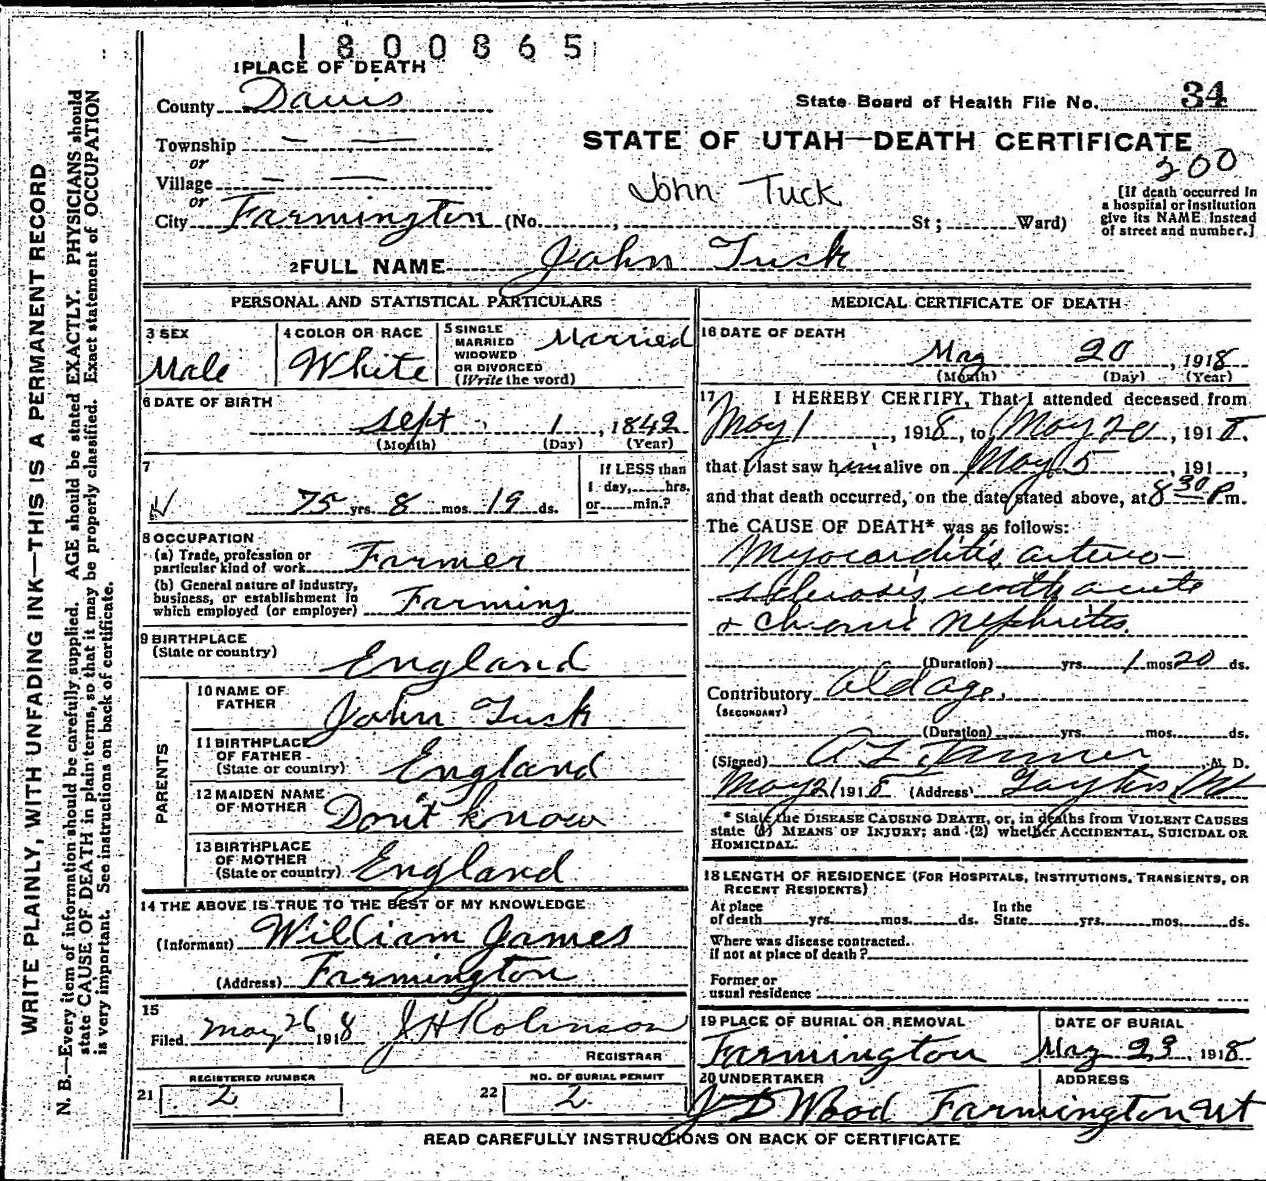 1800865
1 PLACE OF DEATH
County Davis
State Board of Health File No. 34
Township — —
or
STATE OF UTAH—DEATH CERTIFICATE
200
Village — —
or
John Tuck
City Farmington (No. , St; Ward)
[If death occurred in
a hospital or institution
give its NAME instead
of street and number.]
2 FULL NAME John Tuck
PERSONAL AND STATISTICAL PARTICULARS
3 SEX
Male
4 COLOR OR RACE
White
5 SINGLE
MARRIED
WIDOWED
OR DIVORCED
(Write the word)
Married
6 DATE OF BIRTH
Sept 1, 1842
(Month) (Day) (Year)
7
75 yrs. 8 mos. 19 ds.
If LESS than
1 day, hrs.
or min.?
8 OCCUPATION
(a) Trade, profession or
particular kind of work Farmer
(b) General nature of industry,
business, or establishment in
which employed (or employer) Farming
9 BIRTHPLACE
(State or country)
England
PARENTS
10 NAME OF
FATHER
John Tuck
11 BIRTHPLACE
OF FATHER
(State or country) England
12 MAIDEN NAME
OF MOTHER Don't know
13 BIRTHPLACE
OF MOTHER
(State or country) England
14 THE ABOVE IS TRUE TO THE BEST OF MY KNOWLEDGE
(Informant) William James
(Address) Farmington
15
Filed May 26 1918 J H Robinson
REGISTRAR
21 REGISTERED NUMBER
2
22 NO. OF BURIAL PERMIT
2
MEDICAL CERTIFICATE OF DEATH
16 DATE OF DEATH
May 20, 1918
(Month) (Day) (Year)
17 I HEREBY CERTIFY, That I attended deceased from
May 1, 1918, to May 20, 1918.
that I last saw him alive on May 5, 191 ,
and that death occurred, on the date stated above, at 8 30 P m.
The CAUSE OF DEATH* was as follows:
Myocarditis, arterio-
sclerosis, with acute
& chronic nephritis.
(Duration) yrs. 1 mos 20 ds.
Contributory Old age.
(SECONDARY)
(Duration) yrs. mos. ds.
(Signed) A L , M. D.
May 21 1918 (Address) Layton, Ut
* State the DISEASE CAUSING DEATH, or, in deaths from VIOLENT CAUSES
state (1) MEANS OF INJURY; and (2) whether ACCIDENTAL, SUICIDAL OR
HOMICIDAL.
18 LENGTH OF RESIDENCE (FOR HOSPITALS, INSTITUTIONS, TRANSIENTS, OR
RECENT RESIDENTS)
At place
of death yrs. mos. ds.
In the
State yrs. mos. ds.
Where was disease contracted.
if not at place of death?
Former or
usual residence
19 PLACE OF BURIAL OR REMOVAL
Farmington
DATE OF BURIAL
May 23, 1918
20 UNDERTAKER
ADDRESS
J D Wood Farmington Ut
READ CAREFULLY INSTRUCTIONS ON BACK OF CERTIFICATE
WRITE PLAINLY, WITH UNFADING INK—THIS IS A PERMANENT RECORD
N. B.—Every item of information should be carefully supplied. AGE should be stated EXACTLY. PHYSICIANS should
state CAUSE OF DEATH in plain terms, so that it may be properly classified. Exact statement of OCCUPATION
is very important. See instructions on back of certificate.